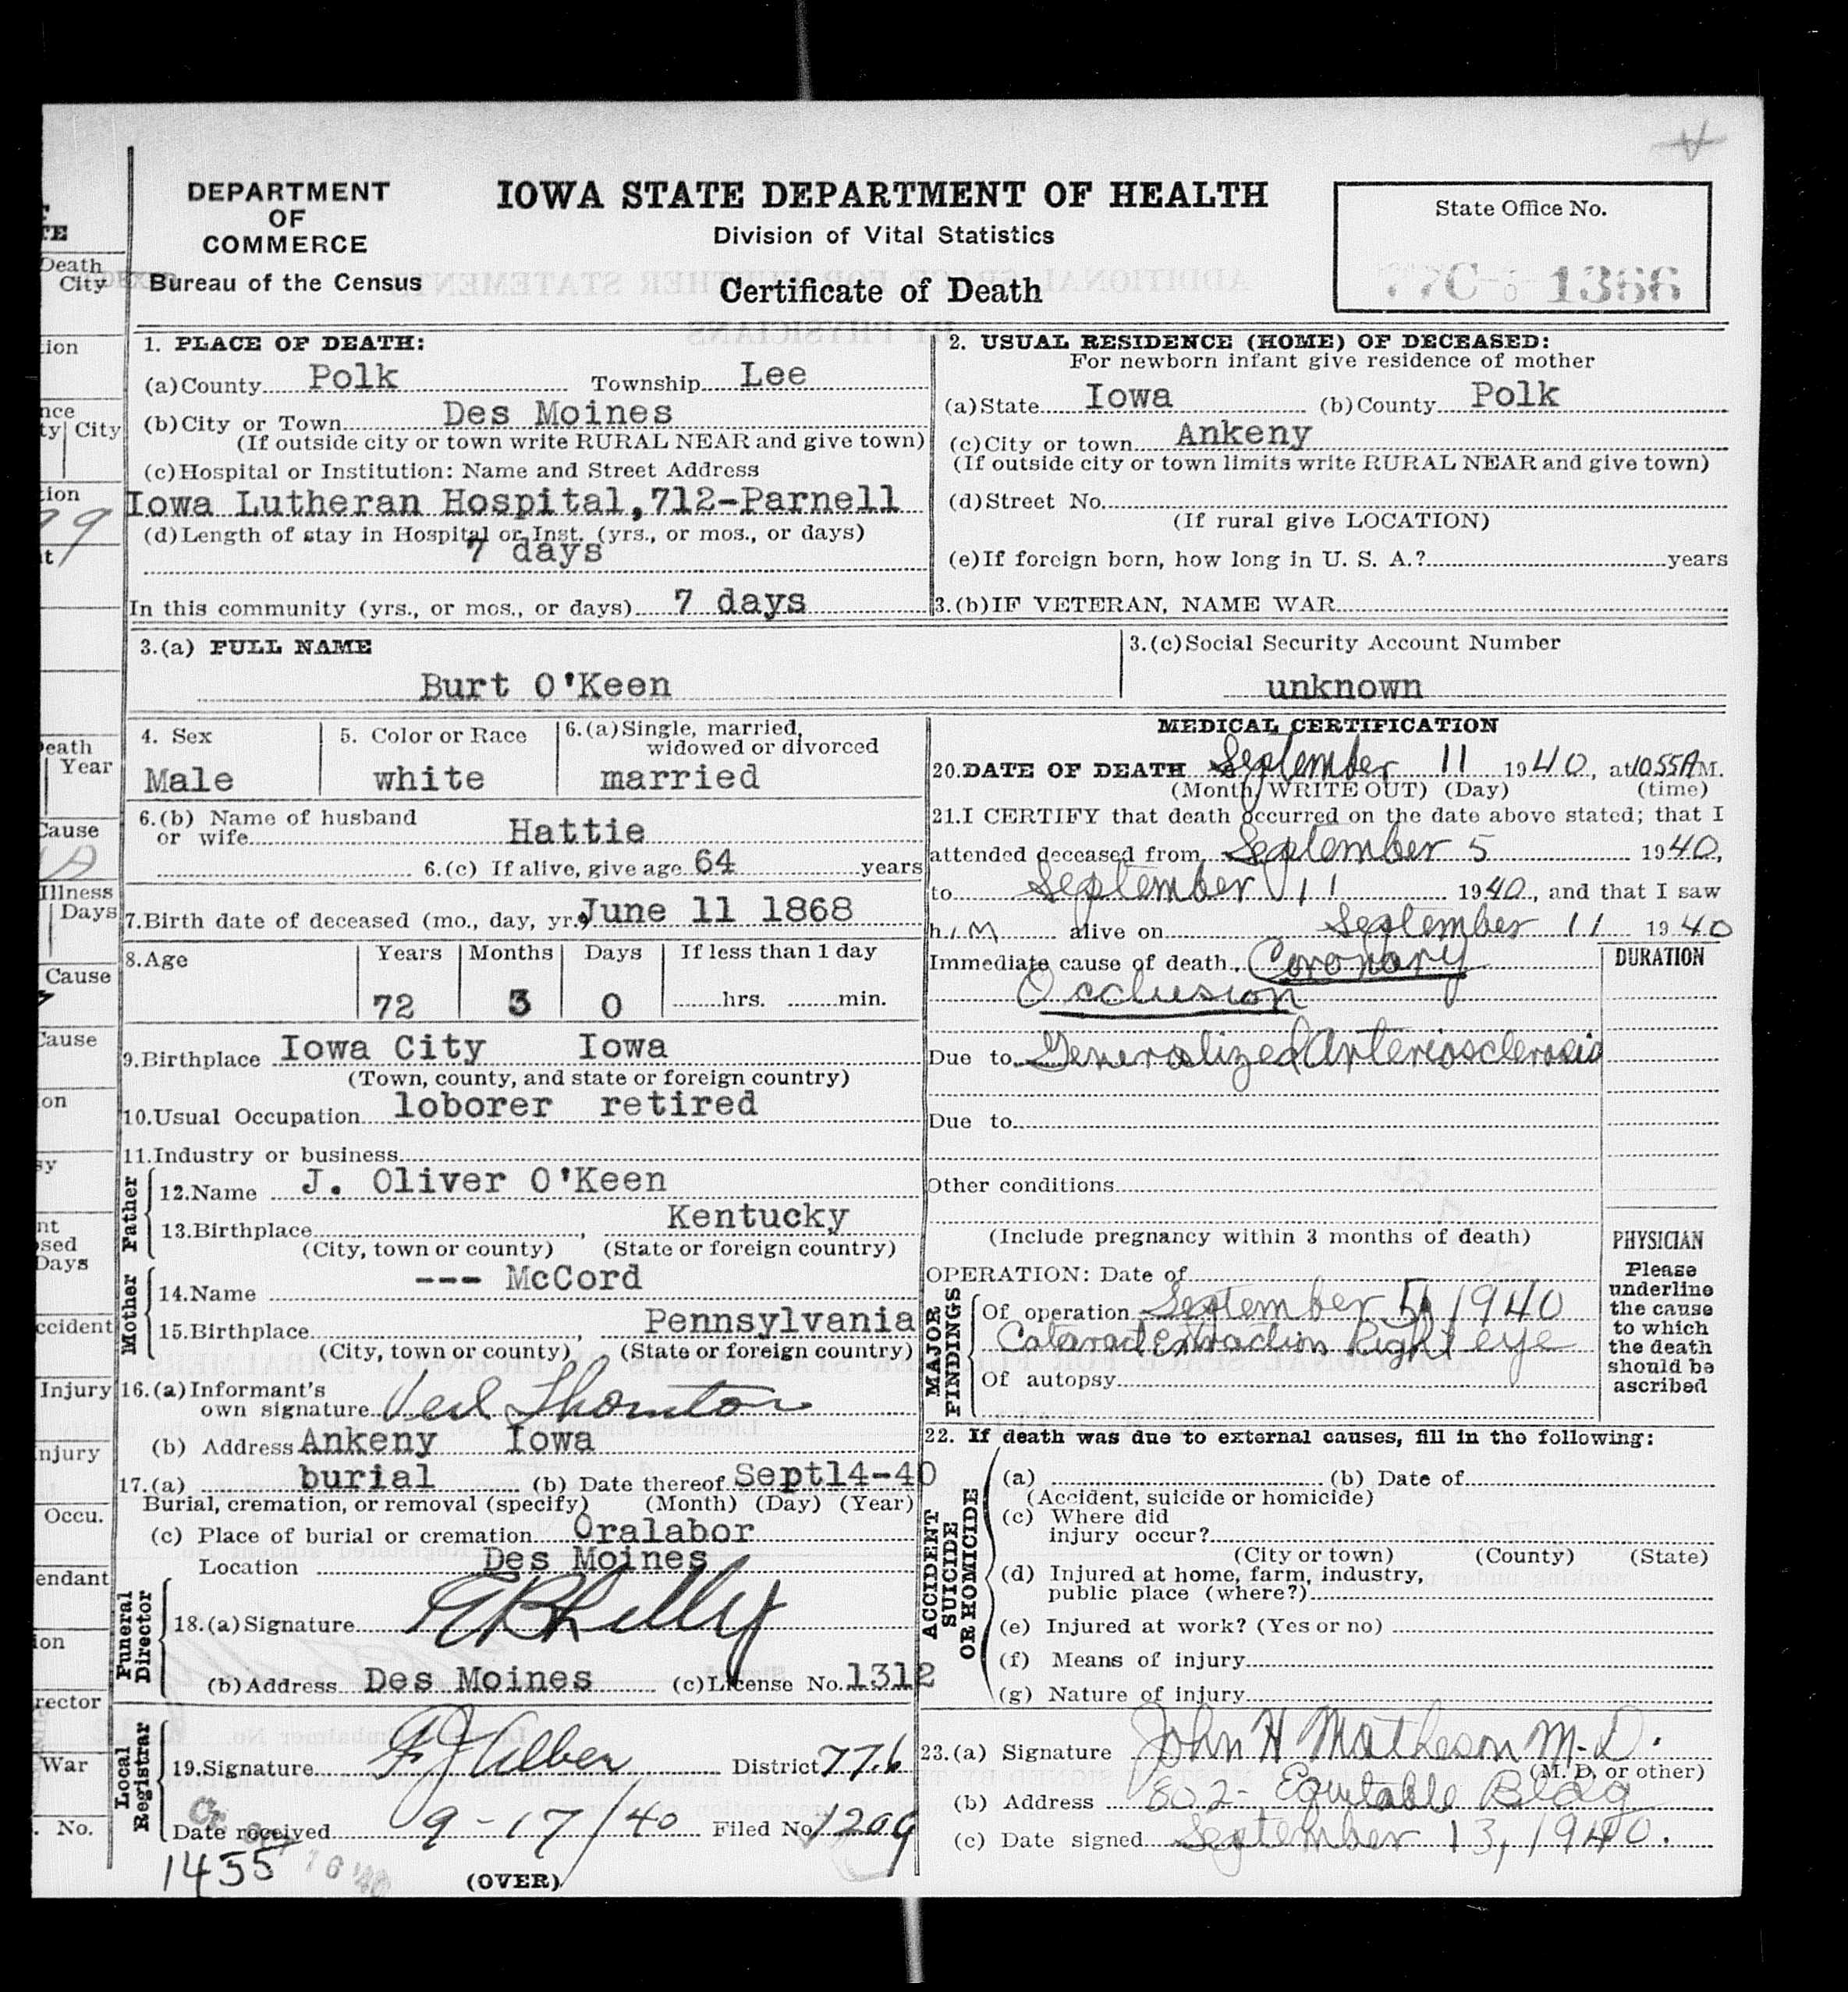 DEPARTMENT
OF
COMMERCE
Bureau of the Census
IOWA STATE DEPARTMENT OF HEALTH
Division of Vital Statistics
Certificate of Death
State Office No.
77C- 1366
1. PLACE OF DEATH:
(a)County Polk Township Lee
(b)City or Town Des Moines
(If outside city or town write RURAL NEAR and give town)
(c)Hospital or Institution: Name and Street Address
Iowa Lutheran Hospital,712-Parnell
(d)Length of stay in Hospital or Inst. (yrs., or mos., or days)
7 days
In this community (yrs., or mos., or days) 7 days
2. USUAL RESIDENCE (HOME) OF DECEASED:
For newborn infant give residence of mother
(a)State Iowa (b)County Polk
(c)City or town Ankeny
(If outside city or town limits write RURAL NEAR and give town)
(d)Street No.
(If rural give LOCATION)
(e)If foreign born, how long in U. S. A.? years
3.(b)IF VETERAN, NAME WAR
3.(a) FULL NAME
Burt O'Keen
3.(c)Social Security Account Number
unknown
4. Sex
Male
5. Color or Race
white
6.(a)Single, married,
widowed or divorced
married
6.(b) Name of husband
or wife Hattie
6.(c) If alive, give age 64 years
7.Birth date of deceased (mo., day, yr.) June 11 1868
8.Age Years Months Days If less than 1 day
72 3 0 hrs. min.
9.Birthplace Iowa City Iowa
(Town, county, and state or foreign country)
10.Usual Occupation loborer retired
11.Industry or business
Father
12.Name J. Oliver O'Keen
13.Birthplace , Kentucky
(City, town or county) (State or foreign country)
Mother
14.Name --- McCord
15.Birthplace , Pennsylvania
(City, town or county) (State or foreign country)
16.(a)Informant's
own signature Thornton
(b) Address Ankeny Iowa
17.(a) burial (b) Date thereof Sept14-40
Burial, cremation, or removal (specify) (Month) (Day) (Year)
(c) Place of burial or cremation Oralabor
Location Des Moines
Funeral Director
18.(a)Signature
(b)Address Des Moines (c)License No. 1312
Local Registrar
19.Signature F J Alber District 77.6
Date received 9-17/40 Filed No. 1209
1455
16 '40
(OVER)
MEDICAL CERTIFICATION
20.DATE OF DEATH September 11 1940, at 10 55 A M.
(Month, WRITE OUT) (Day) (time)
21.I CERTIFY that death occurred on the date above stated; that I
attended deceased from September 5 1940,
to September 11 1940, and that I saw
him alive on September 11 1940
Immediate cause of death Coronary
Occlusion
DURATION
Due to Generalized Arteriosclerosis
Due to
Other conditions
(Include pregnancy within 3 months of death)
OPERATION: Date of
MAJOR FINDINGS
Of operation September 5, 1940
Cataract Extraction Right eye
Of autopsy
PHYSICIAN
Please
underline
the cause
to which
the death
should be
ascribed
22. If death was due to external causes, fill in the following:
ACCIDENT SUICIDE OR HOMICIDE
(a) (b) Date of
(Accident, suicide or homicide)
(c) Where did
injury occur?
(City or town) (County) (State)
(d) Injured at home, farm, industry,
public place (where?)
(e) Injured at work? (Yes or no)
(f) Means of injury
(g) Nature of injury
23.(a) Signature John H Matheson M.D.
(M. D. or other)
(b) Address 802- Equitable Bldg
(c) Date signed September 13, 1940.
TE
Death
City
ion
nce
ty City
tion
99
t
Death
Year
Cause
A
Illness
Days
Cause
Cause
on
sy
nt
sed
Days
ccident
Injury
njury
Occu.
endant
ion
rector
War
. No.